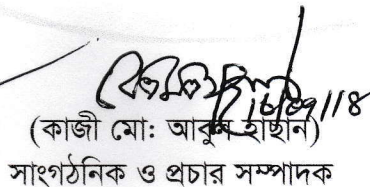 (কাজী মো: আবুল হাছান)
সাংগঠনিক ও প্রচার সম্পাদক